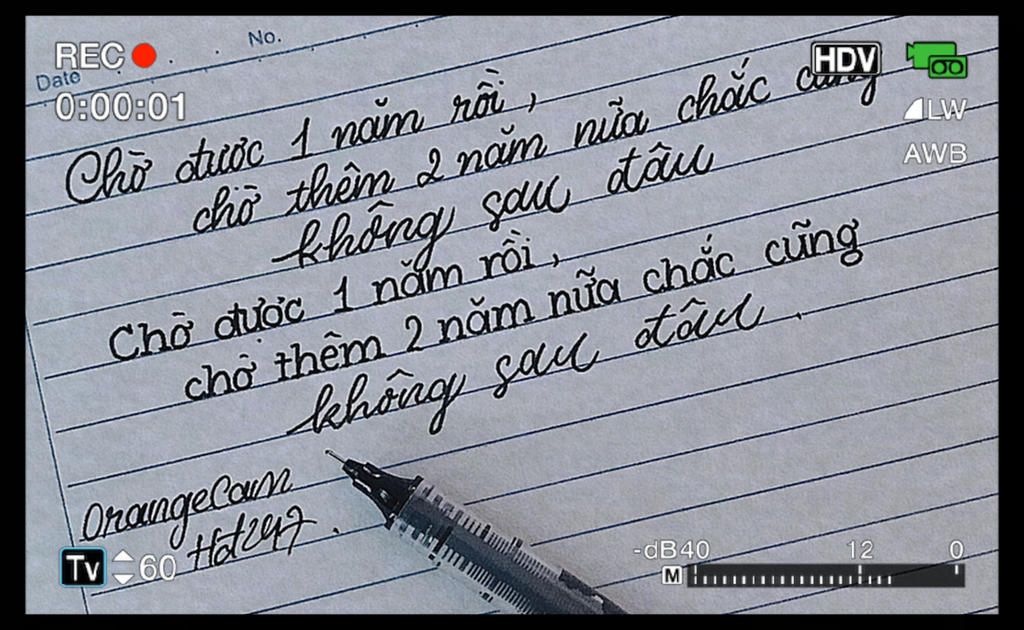 No.
REC
Date
HDV
0:00:01
LW
AWB
Chờ được 1 năm rồi,
chờ thêm 2 năm nữa chắc cũng
không sau đâu
Chờ được 1 năm rồi,
chờ thêm 2 năm nữa chắc cũng
không sau đâu.
OrangeCam
Hot247.
Tv 60
-dB40 12 0
M